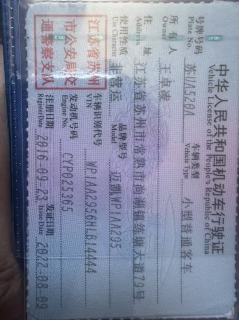 中华人民共和国机动车行驶证
Vehicle License of the People's Republic of China
号牌号码 Plate No. 车辆类型 Vehicle Type 小型普通客车
所有人 Owner
住址 Address 江苏省苏州市常熟市尚湖镇练塘大道79号
使用性质 Use Character 非营运 品牌型号 Model
江苏省苏州
市公安局交
通警察支队
车辆识别代号 VIN
发动机号码 Engine No. CYP025365
注册日期 Register Date 2016-09-23 发证日期 Issue Date 2022-08-09